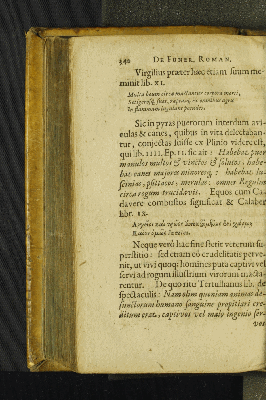 340 DE FUNER. ROMAN.
Virgilius præter hæc etiam suum me-
minit lib. XI.
Multa boum circa mactantur corpora morti,
Setigerosque sues, raptasque ex omnibus agris
In flammam iugulant pecudes.
Sic in pyras puerorum interdum avi-
culas & canes, quibus in vita delectaban-
tur, conjectas fuisse ex Plinio videre est,
qui lib. IIII. Ep. II. sic ait: Habebat puer
mannulos multos & vinctos & solutos, habe-
bat canes majores minoresq; : habebat lu-
scinias, psittacos, merulas: omnes Regulus
circa rogum trucidavit. Equos cum Ca-
davere compustos significat & Calaber
libr. IX.
Neque verò hac fine stetit veterum su-
perstitio: sed etiam eò crudelitatis perve-
nit, ut vivi quoq; homines puta captivi vel
servi ad rogum illustrium virorum macta-
rentur. De quo ritu Tertullianus lib. de
spectaculis: Nam olim quoniam animas de-
functorum humano sanguine propitiari cre-
ditum erat, captivos vel malo ingenio ser-
vos